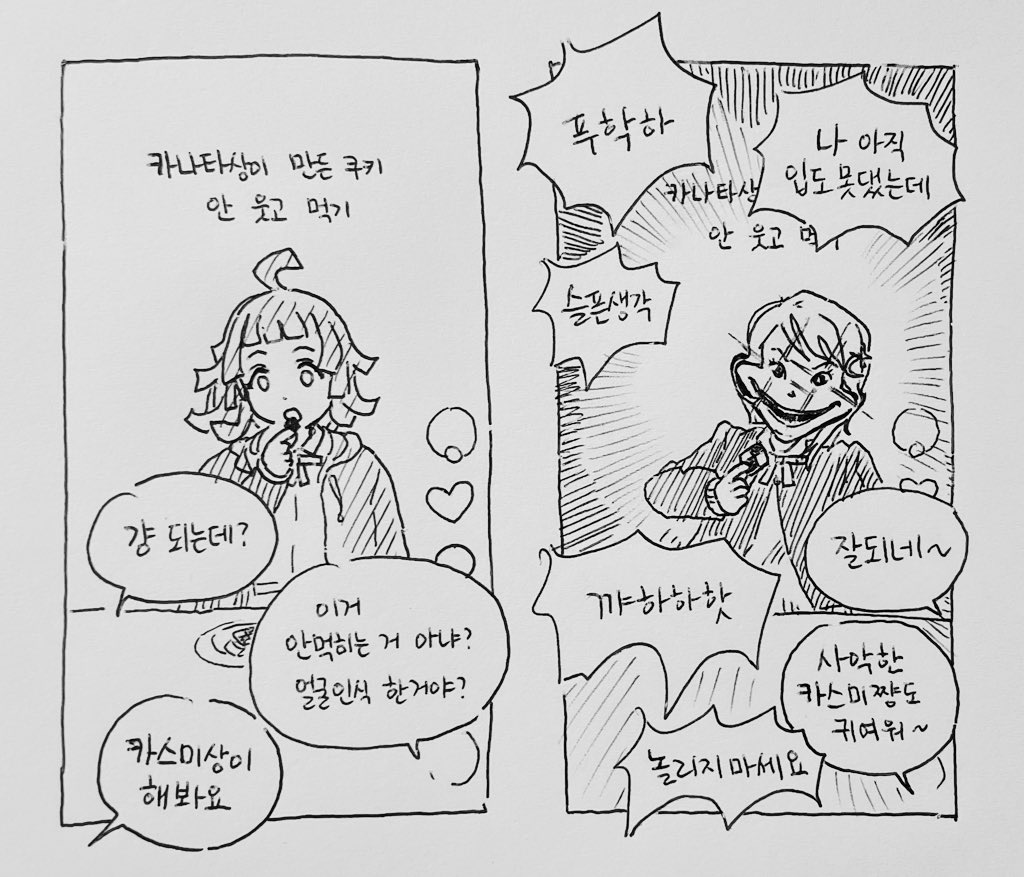 카나타상이 만든 쿠키
안 웃고 먹기
걍 되는데?
이거
안먹히는 거 아냐?
얼굴인식 한거야?
카스미상이
해봐요
푸학하
나 아직
입도 못댔는데
카나타상
안 웃고 먹
슬픈생각
잘되네~
꺄하하핫
사악한
카스미쨩도
귀여워~
놀리지마세요